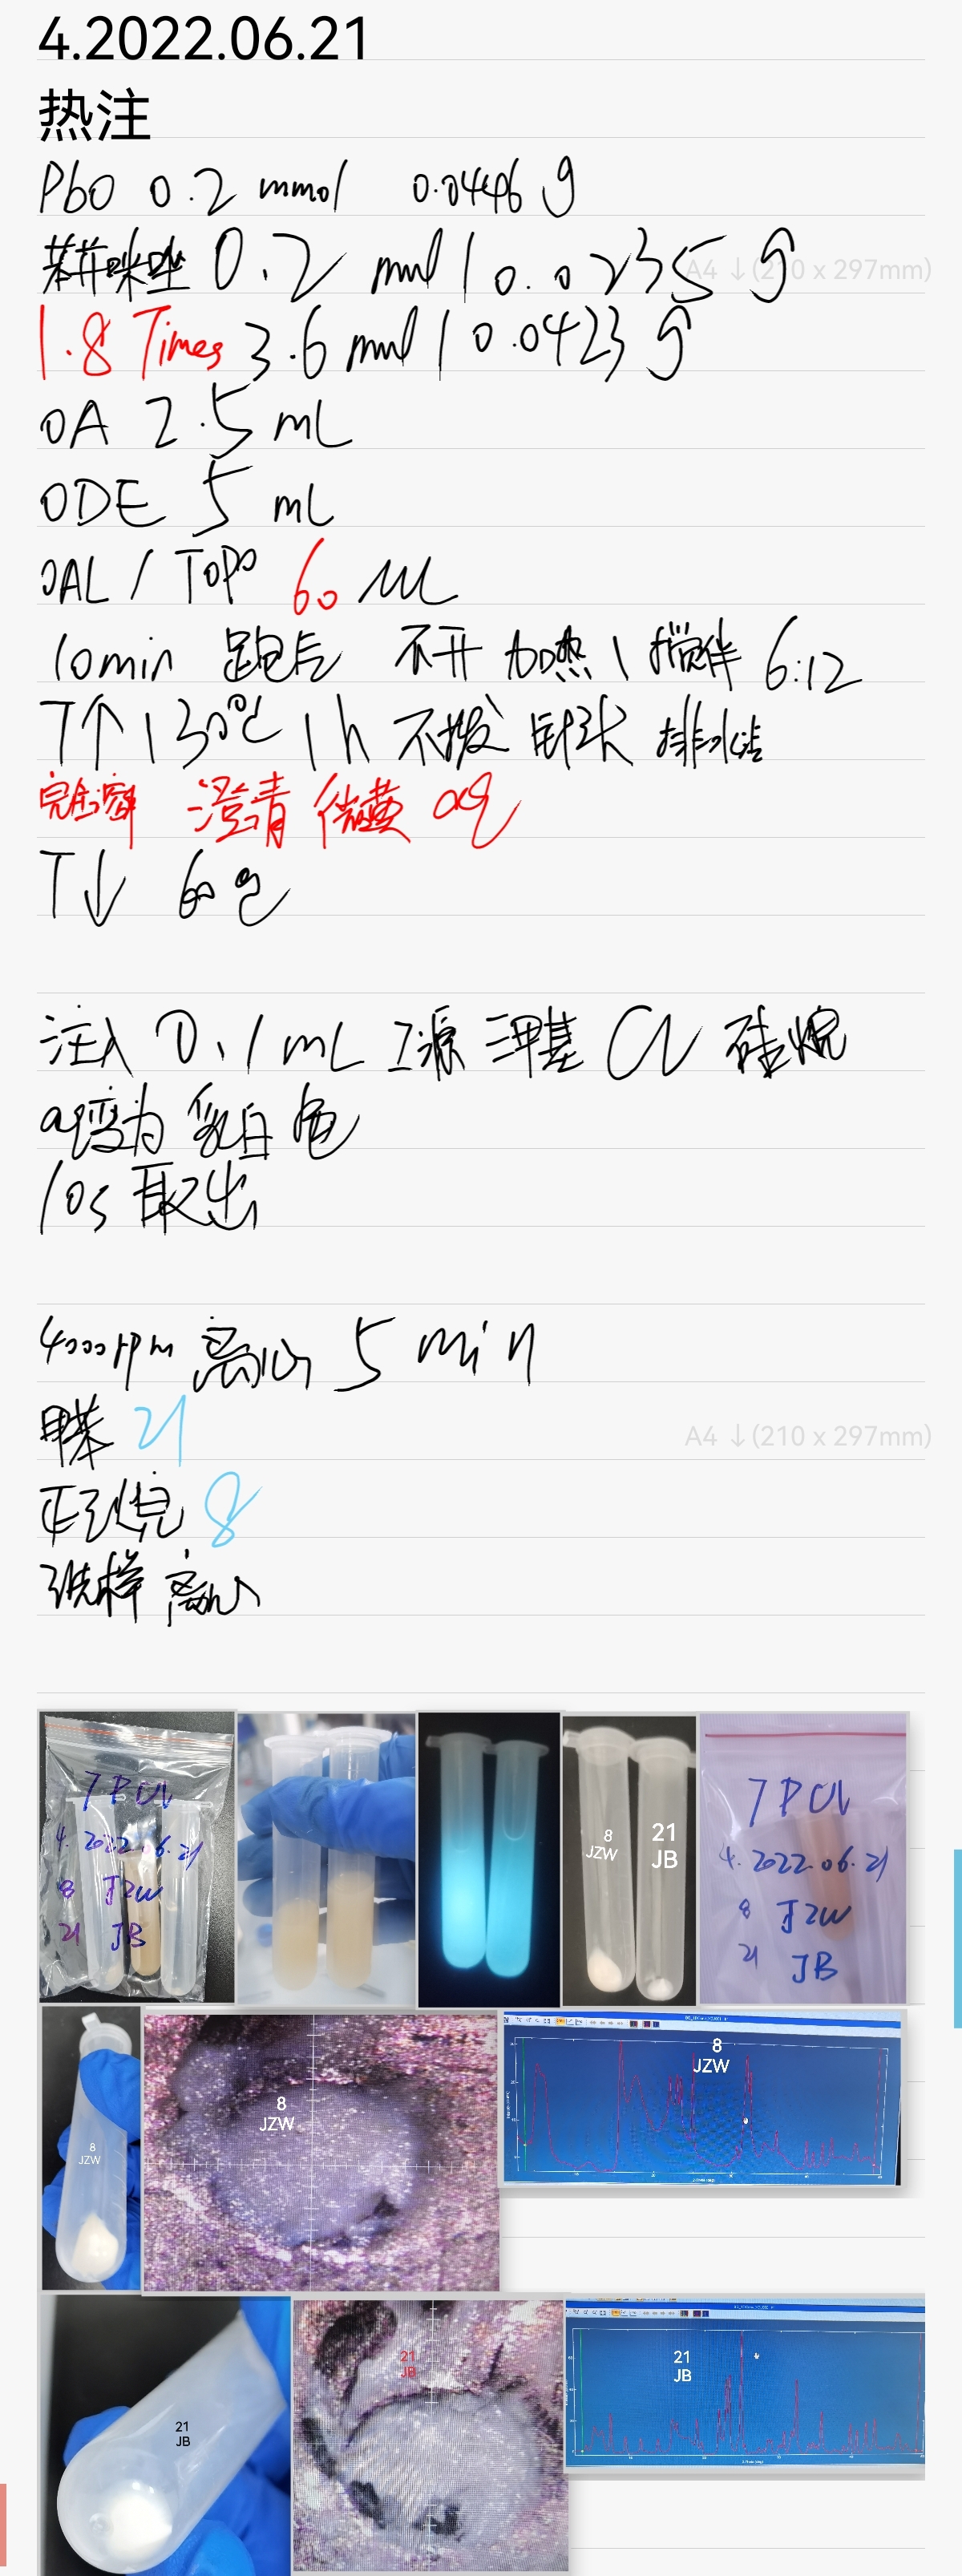 4.2022.06.21
热注
PbO 0.2 mmol 0.0446 g
苯并咪唑 0.2 mmol / 0.0235 g
A4 ↓(210 x 297mm)
1.8 Times 3.6 mmol / 0.0423 g
OA 2.5 mL
ODE 5 mL
OAL / TOPO 60 μL
10min 跑后 不开加热 \ 搅拌 6:12
T↑ 130℃ 1h 不拔针头 排水洁
完全溶解 澄清 微黄 aq
T↓ 60℃
注入 0.1mL 三甲基 Cl 硅烷
aq变为乳白色
10s 取出
4000rpm 离心 5 min
甲苯 21
A4 ↓(210 x 297mm)
正己烷 8
洗样 离心
7 PCl
4. 2022.06.21
8 JZW
21 JB
8
JZW
21
JB
7 PCl
4. 2022.06.21
8 JZW
21 JB
8
JZW
8
JZW
8
JZW
21
JB
21
JB
21
JB